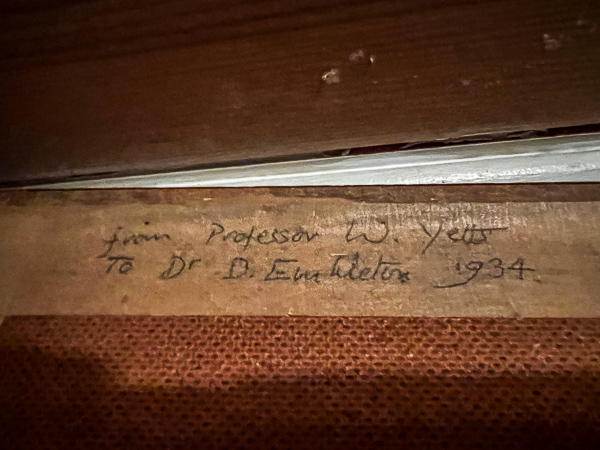 from Professor W. Yetts
To Dr D. Embleton 1934